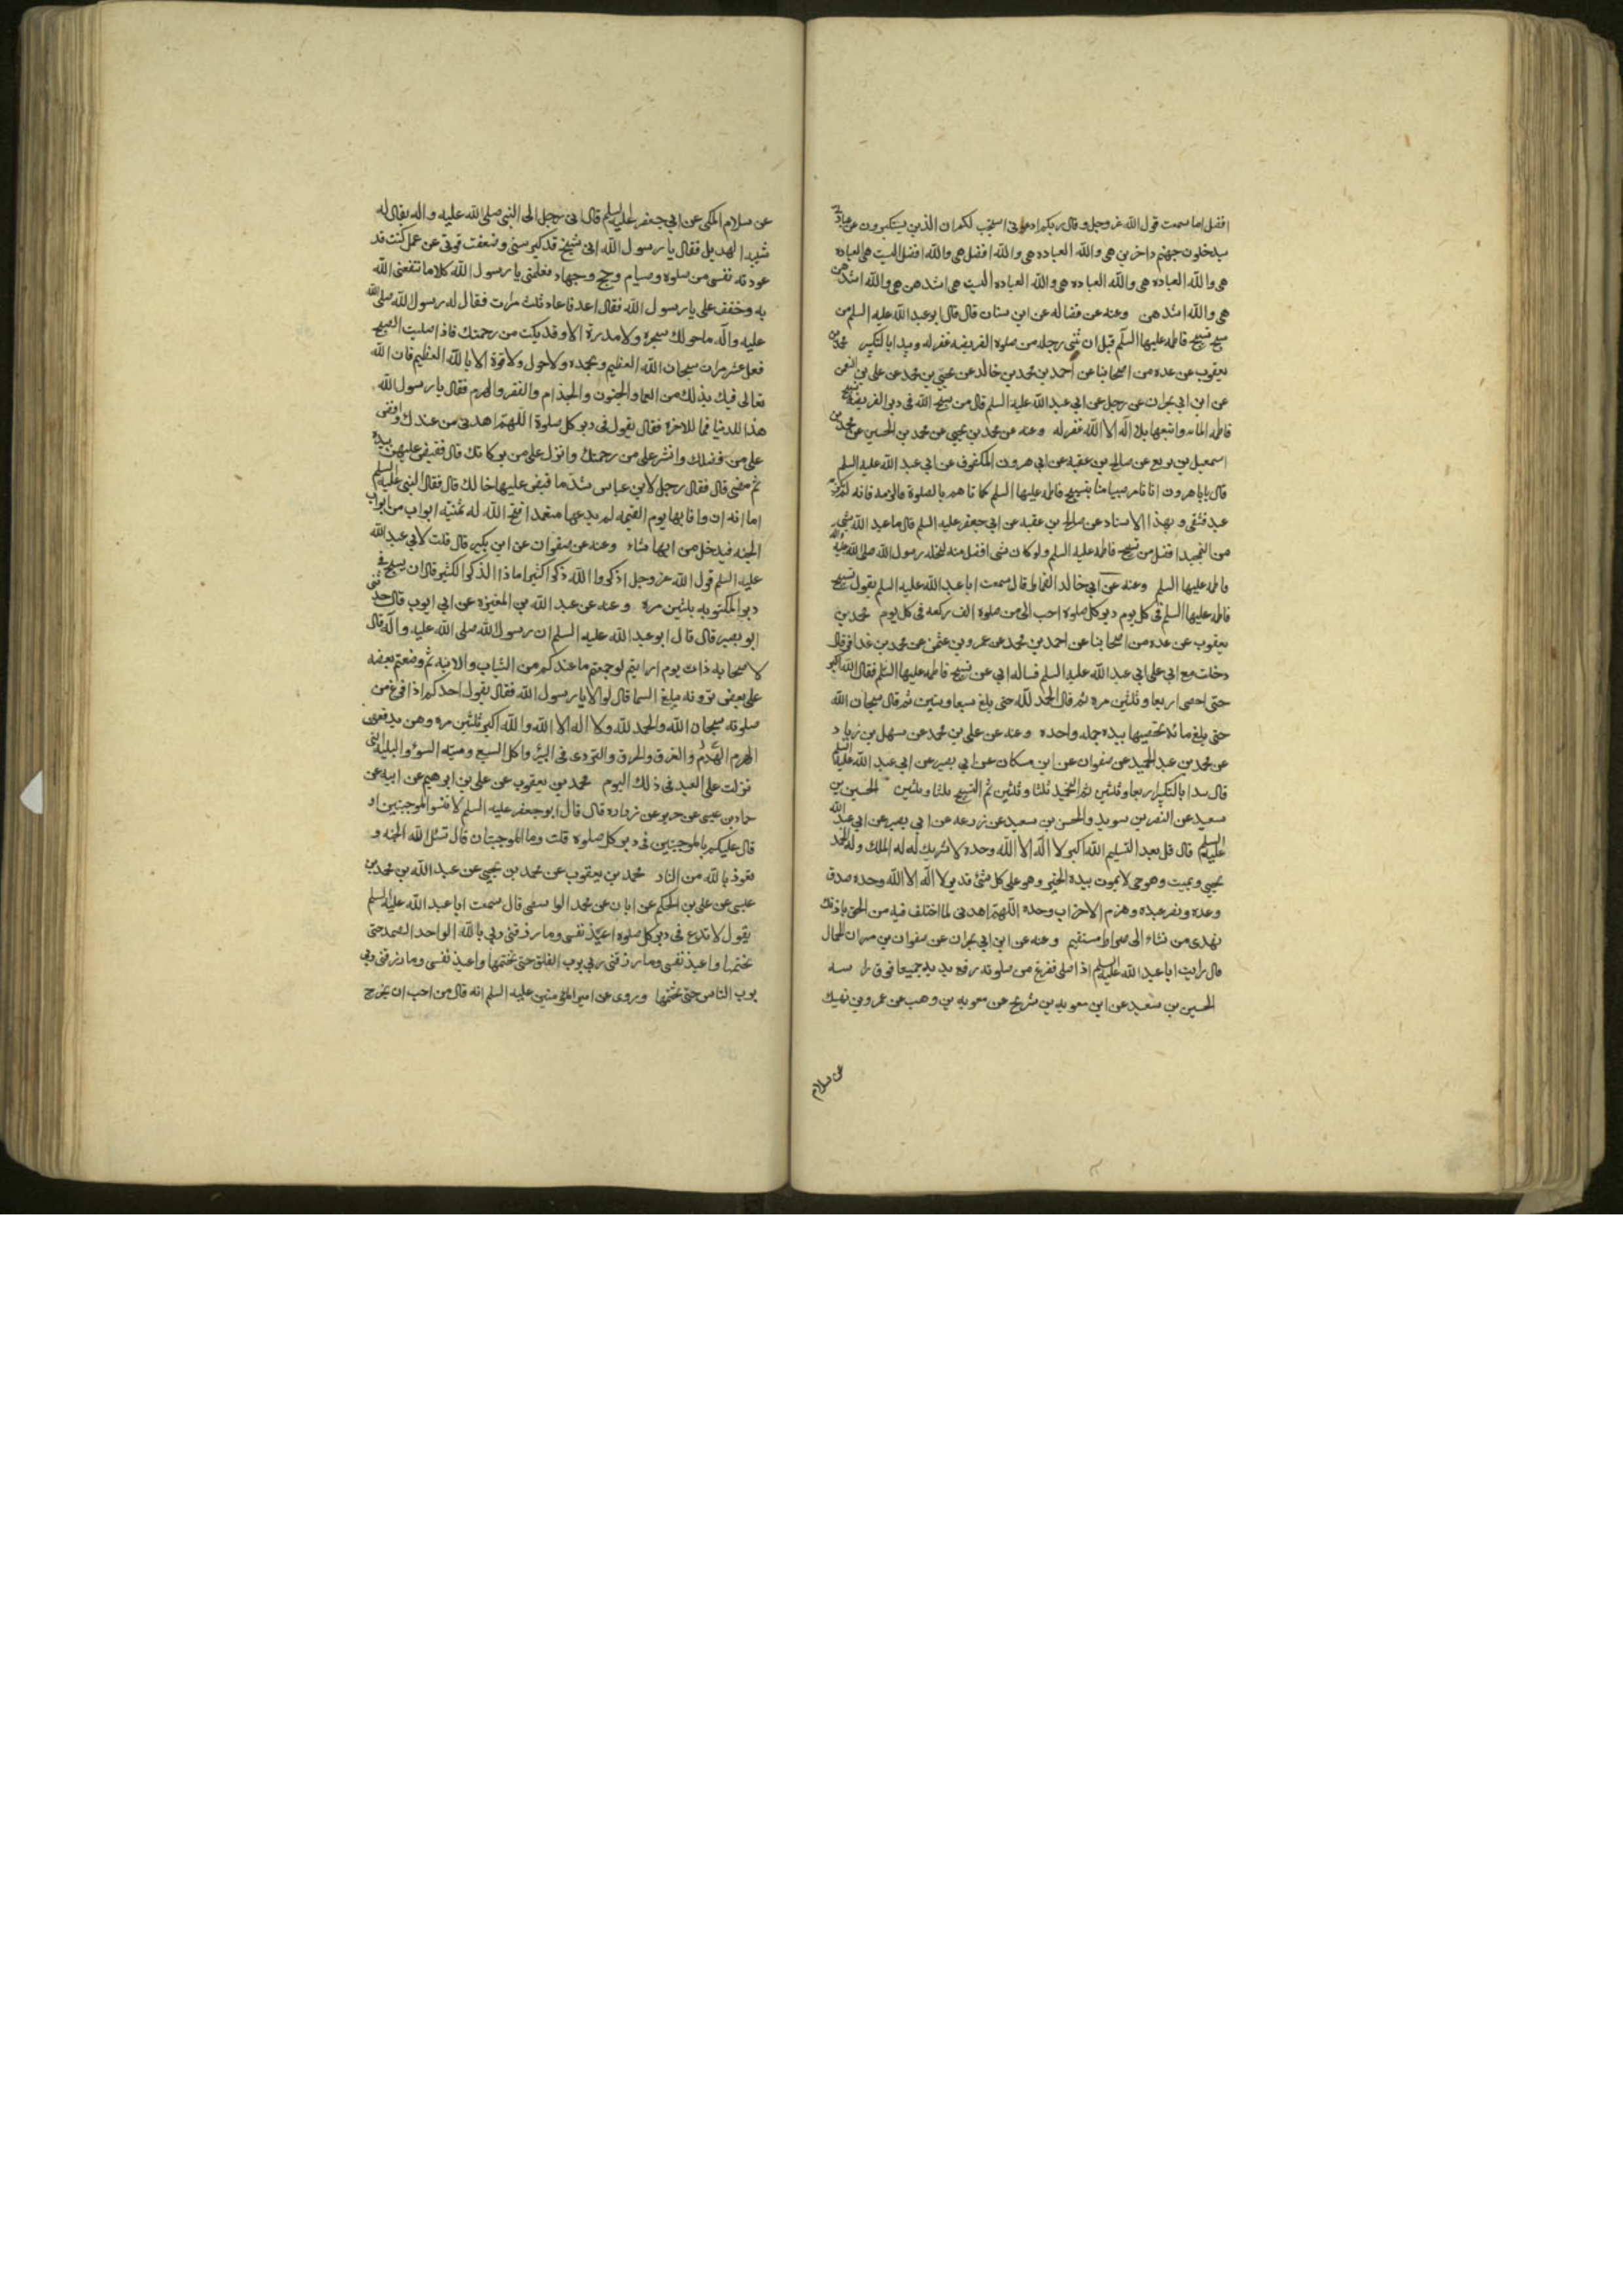 افضل اما سمعت قول الله عز وجل وقال ربكم ادعوني استجب لكم ان الذين يستكبرون عن عبادتى
سيدخلون جهنم داخرين هي والله العباده هي والله افضل هي والله افضل اليست هي العباده
هي والله العباده هي والله العباده هي والله العباده اليست هي اشدهن هي والله اشدهن
هي والله اشدهن وعنه عن فضاله عن ابن سنان قال قال ابو عبد الله عليه السلم من
سبح تسبيح فاطمه عليها السلم قبل ان يثنى رجله من صلوة الفريضه غفر له ويبدا بالتكبير محمد بن
يعقوب عن عده من اصحابنا عن احمد بن محمد بن خالد عن يحيى بن محمد عن على بن النعمن
عن ابن ابي نجران عن رجل عن ابي عبد الله عليه السلم قال من سبح الله في دبر الفريضة تسبيح
فاطمه المائه واتبعها بلا اله الا الله غفر له وعنه عن محمد بن يحيى عن محمد بن الحسين عن محمد بن
اسمعيل بن بزيع عن صالح بن عقبه عن ابي هرون المكفوف عن ابي عبد الله عليه السلم
قال يابا هرون انا نامر صبياننا بتسبيح فاطمه عليها السلم كما نامرهم بالصلوة فالزمه فانه لم يلزمه
عبد فشقى وبهذا الاسناد عن صالح بن عقبه عن ابي جعفر عليه السلم قال ما عبد الله بشى
من التمجيد افضل من تسبيح فاطمه عليه السلم ولو كان شى افضل منه لنحله رسول الله صلى الله عليه واله
فاطمه عليها السلم وعنه عن ابي خالد القماط قال سمعت ابا عبد الله عليه السلم يقول تسبيح
فاطمه عليها السلم في كل يوم دبر كل صلوة احب الى من صلوة الف ركعه في كل يوم محمد بن
يعقوب عن عده من اصحابنا عن احمد بن محمد عن عمرو بن عثمن عن محمد بن عذافر قال
دخلت مع ابي على ابي عبد الله عليه السلم فساله ابي عن تسبيح فاطمه عليها السلم فقال الله اكبر
حتى احصى اربعا وثلثين مره ثم قال الحمد لله حتى بلغ سبعا وستين ثم قال سبحان الله
حتى بلغ مائة يحصيها بيده جمله واحده وعنه عن على بن محمد عن سهل بن زياد
عن محمد بن عبد الحميد عن صفوان عن ابن مسكان عن ابي بصير عن ابي عبد الله عليه السلم
قال يبدا بالتكبير اربعا وثلثين ثم التحميد ثلثا وثلثين ثم التسبيح ثلثا وثلثين الحسين بن
سعيد عن النضر بن سويد والحسن بن سعيد عن زرعه عن ابي بصير عن ابي عبد الله
عليه السلم قال قل بعد التسليم الله اكبر لا اله الا الله وحده لا شريك له له الملك وله الحمد
يحيى ويميت وهو حى لا يموت بيده الخير وهو على كل شئ قدير لا اله الا الله وحده صدق
وعده ونصر عبده وهزم الاحزاب وحده اللهم اهدنى لما اختلف فيه من الحق باذنك
تهدى من تشاء الى صراط مستقيم وعنه عن ابن ابي نجران عن صفوان بن مهران الجمال
قال رايت ابا عبد الله عليه السلم اذا صلى ففرغ من صلوته رفع يديه جميعا فوق راسه
الحسين بن سعيد عن ابن معويه بن شريح عن معويه بن وهب عن عمرو بن نهيك
عن سلام
عن سلام المكى عن ابي جعفر عليه السلم قال اتى رجل الى النبى صلى الله عليه واله يقال له
شيبه الهديل فقال يا رسول الله انى شيخ قد كبر سنى وضعفت قوتى عن عمل كنت قد
عودته نفسى من صلوة وصيام وحج وجهاد فعلمنى يا رسول الله كلاما تنفعنى الله
به وخفف على يا رسول الله فقال اعد فاعاد ثلث مرات فقال له رسول الله صلى الله
عليه واله ما حولك شجره ولا مدرة الا وقد بكت من رحمتك فاذا صليت الصبح
فقل عشر مرات سبحان الله العظيم وبحمده ولا حول ولا قوة الا بالله العظيم فان الله
تعالى فيك بذلك من العما والجنون والجذام والفقر والهرم فقال يا رسول الله
هذا للدنيا فما للاخرة فقال يقول في دبر كل صلوة اللهم اهدنى من عندك وافض
على من فضلك وانشر على من رحمتك وانزل على من بركاتك قال فقبض عليهن بيده
ثم مضى قال فقال رجل لابن عباس شد ما قبض عليها خالك قال فقال النبى عليه السلم
اما انه ان وافا بها يوم القيمه لم يدعها متعمدا فتح الله له ثمنية ابواب من ابواب
الجنه فيدخل من ايها شاء وعنه عن صفوان عن ابن بكير قال قلت لابي عبد الله
عليه السلم قول الله عز وجل اذكروا الله ذكرا كثيرا ماذا الذكر الكثير قال ان يسبح في
دبر المكتوبه بثلثين مره وعنه عن عبد الله بن المغيره عن ابي ايوب قال حدثنى
ابو بصير قال قال ابو عبد الله عليه السلم ان رسول الله صلى الله عليه واله قال
لاصحابه ذات يوم ارايتم لو جمعتم ما عندكم من الثياب والانيه ثم وضعتم بعضه
على بعض ترونه يبلغ السما قالوا لا يا رسول الله فقال يقول احدكم اذا فرغ من
صلوته سبحان الله والحمد لله ولا اله الا الله والله اكبر ثلثين مره وهن يدفعن
الهرم الهدم والغرق والحرق والتردى في البئر واكل السبع وميته السوء والبلية التى
نزلت على العبد في ذلك اليوم محمد بن يعقوب عن على بن ابرهيم عن ابيه عن
حماد بن عيسى عن حريز عن زراره قال قال ابو جعفر عليه السلم لا تنسوا الموجبتين او
قال عليكم بالموجبتين في دبر كل صلوه قلت وما الموجبتان قال تسئل الله الجنه و
تعوذ بالله من النار محمد بن يعقوب عن محمد بن يحيى عن عبد الله بن محمد بن
عيسى عن على بن الحكم عن ابان عن محمد الواسطى قال سمعت ابا عبد الله عليه السلم
يقول لا تدع في دبر كل صلوه اعيذ نفسى وما رزقنى ربي بالله الواحد الصمد حتى
تختمها واعيذ نفسى وما رزقنى ربي برب الفلق حتى تختمها واعيذ نفسى وما رزقنى ربي
برب الناس حتى تختمها وروى عن امير المؤمنين عليه السلم انه قال من احب ان يخرج